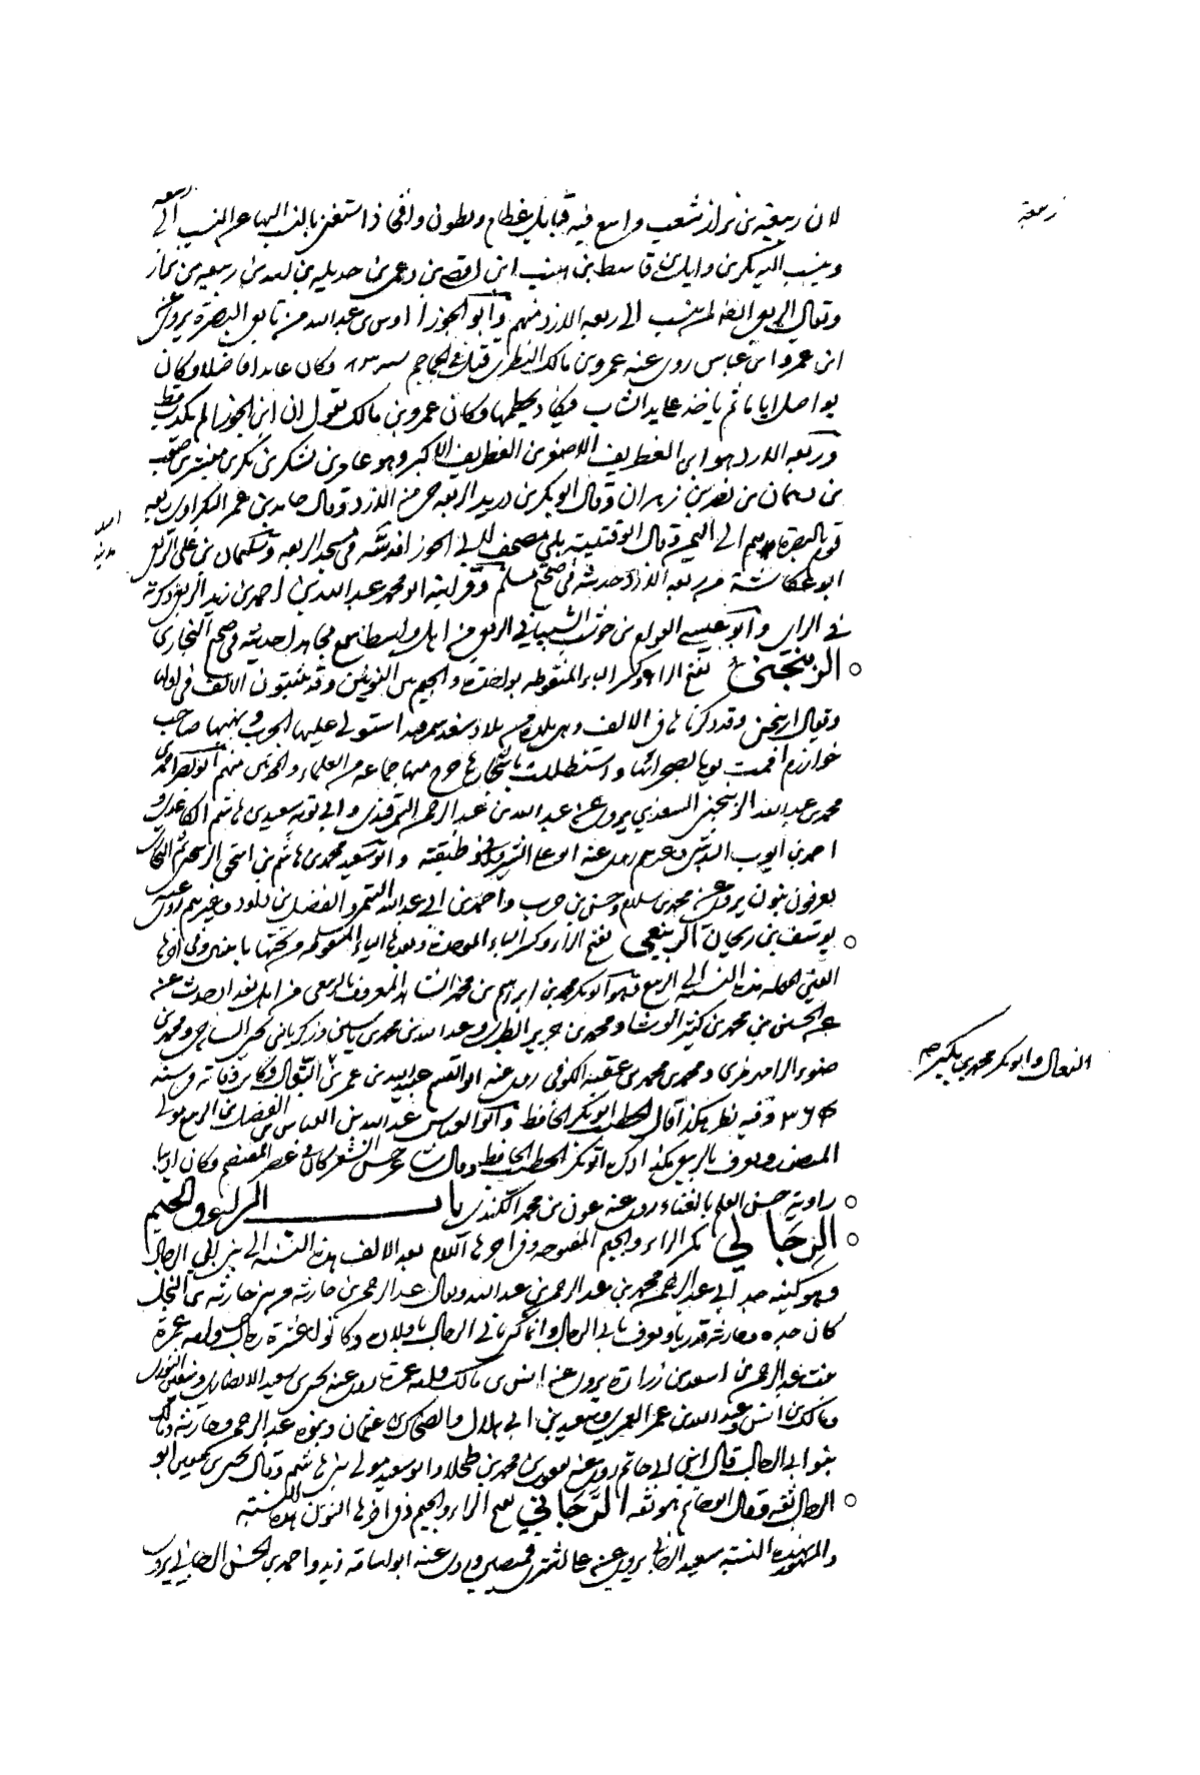 لان ربيعة بن نزار شعب واسع فيه قبايل عظام وبطون وافخاذ استغنى بالنسب اليها عن النسب الى ربيعة
وينسب اليه بكر بن وايل بن قاسط بن هنب ابن افصى بن دعمى بن جديله بن اسد بن ربيعه بن نزار
ويقال الربعى ايضا لمن ينسب الى ربعه الازد منهم وابو الجوزا اوس بن عبد الله من تابعى البصرة يروى عن
ابن عمرو ابن عباس روى عنه عمرو بن مالك النكرى قتل فى الجماجم سنه ٨٣ وكان عابدا فاضلا وكان
يواصل اياما ثم ياخذ على يد الشاب فيكاد يحطمها وكان عمرو بن مالك يقول ان ابن الجوزا لم يكذب قط
وربعه الازد هو ابن الغطريف الاصغر بن الغطريف الاكبر وهو عامر بن يشكر بن بكر بن مبشر بن صعب
بن دهمان بن نصر بن زهران وقال ابو بكر بن دريد الربعه حى من الازد وقال حامد بن عمر البكراوى ربعه
قوم بالبصرة هم الى اليمن وقال ابو قتيبة بلى مصحف لابى الجوزا فدفنته فى مسجد الربعه وسليمان بن على الربعى
ابو عكاشة من ربعه الازد حديثه فى صحيح مسلم وقرابته ابو محمد عبد الله بن احمد بن زيد الربعى ذكرته
فى الزاى وابو عيسى العوام بن حوشب الشيبانى الربعى من اهل واسط سمع مجاهدا حديثه فى صحيح البخارى
الربنجنى بفتح الرا وكسر الباء المنقوطه بواحدة والجيم بين النونين وقد يثبتون الالف فى اولها
ويقال اربنجن وقد ذكرنا فى الالف وهى بلده من بلاد سغد سمرقند استولى عليها الخراب ونهبها صاحب
خوارزم اقمت يوما بصحرائها واستظللت باشجارها خرج منها جماعه من العلماء والمحدثين منهم ابو نصر احمد بن
محمد بن عبد الله الربنجنى السغدى يروى عن عبد الله بن عبد الرحمن السمرقندى وابى توبه سعيد بن هاشم الكاغدى و
احمد بن ايوب وغيرهم روى عنه ابو على وطبقته وابو سعيد محمد بن هاشم بن اسحق الربنجنى النجار
يعرفون بنون يروى عن محمد بن سلام وحسين بن حرب واحمد بن ابى عبد الله والفضل بن داود وغيرهم روى عنه
يوسف بن ريحان الربيعى بفتح الراء وكسر الباء الموحدة وبعدها الياء المنقوطه من تحتها باثنتين وفى اخرها
العين المهمله هذه النسبه الى الربيع فهو ابو بكر محمد بن ابراهيم بن المعروف بالربيعى من اهل بغداد حدث عن
عن الحسن بن محمد بن كثير الوشاء ومحمد بن جرير الطبرى وعبد الله بن محمد بن ياسين وزكريا بن يحيى الساجى ومحمد بن
محمد بن محمد بن عقبة الكوفى روى عنه ابو القسم عبيد الله بن عمر بن البقال وكان وفاته فى سنه
٣٦٤ وفيه نظر هكذا قال الخطيب ابو بكر الحافظ وابو العباس عبد الله بن العباس بن الفضل بن الربيع مولى
المنصور ويعرف بالربيعى هكذا ذكره ابو بكر الخطيب الحافظ وقال شاعر حسن الشعر كان فى عصر المعتصم وكان اديبا
راويه حسن العلم بالغناء روى عنه عون بن محمد الكندى باب الراء والجيم
الرجالى بكسر الراء والجيم المفتوحه وفى اخرها اللام بعد الالف هذه النسبه الى بنى ابى الرجال
وهو كنيه جد ابى عبد الرحمن محمد بن عبد الرحمن بن عبد الله ويقال عبد الرحمن بن حارثه من بنى حارثه بن النجار
كان جده حارثه بدريا ويعرف بابى الرجال وانما كنى بابى الرجال باولاده وكانوا عشرة رجال وامه عمرة
بنت عبد الرحمن بن اسعد بن زرارة يروى عن انس بن مالك وامه عمرة روى عنه يحيى بن سعيد الانصارى وسفيان الثورى
ومالك بن انس وعبد الله بن عمر العمرى وسعيد بن ابى هلال والضحاك بن عثمان وبنوه عبد الرحمن وحارثه ومالك
بنو ابى الرجال قال ابن ابى حاتم روى عنه يعقوب بن محمد بن طحلا وابو سعيد مولى بنى هاشم وقال يحيى بن معين ابو
الرجال ثقه وقال ابو حاتم هو ثقه الرجانى بفتح الراء والجيم وفى اخرها النون هذه النسبه
والمشهور بهذه النسبه سعيد الرجانى يروى عن على روى عنه ابو اسامه زيد واحمد بن الحسن الرجانى يروى
ربيعة
اصله
مدنيه
البقال وابو بكر محمد بن بكير